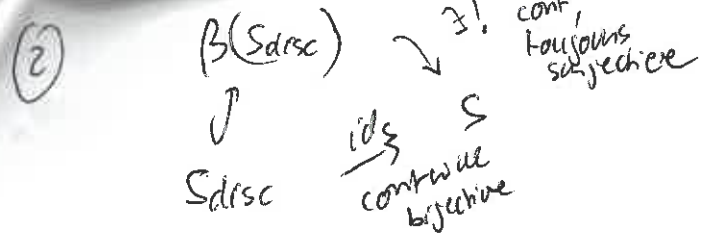 ② β(Sdisc) ∃! cont,
toujours
surjective
S
Sdisc ids
continue
bijective